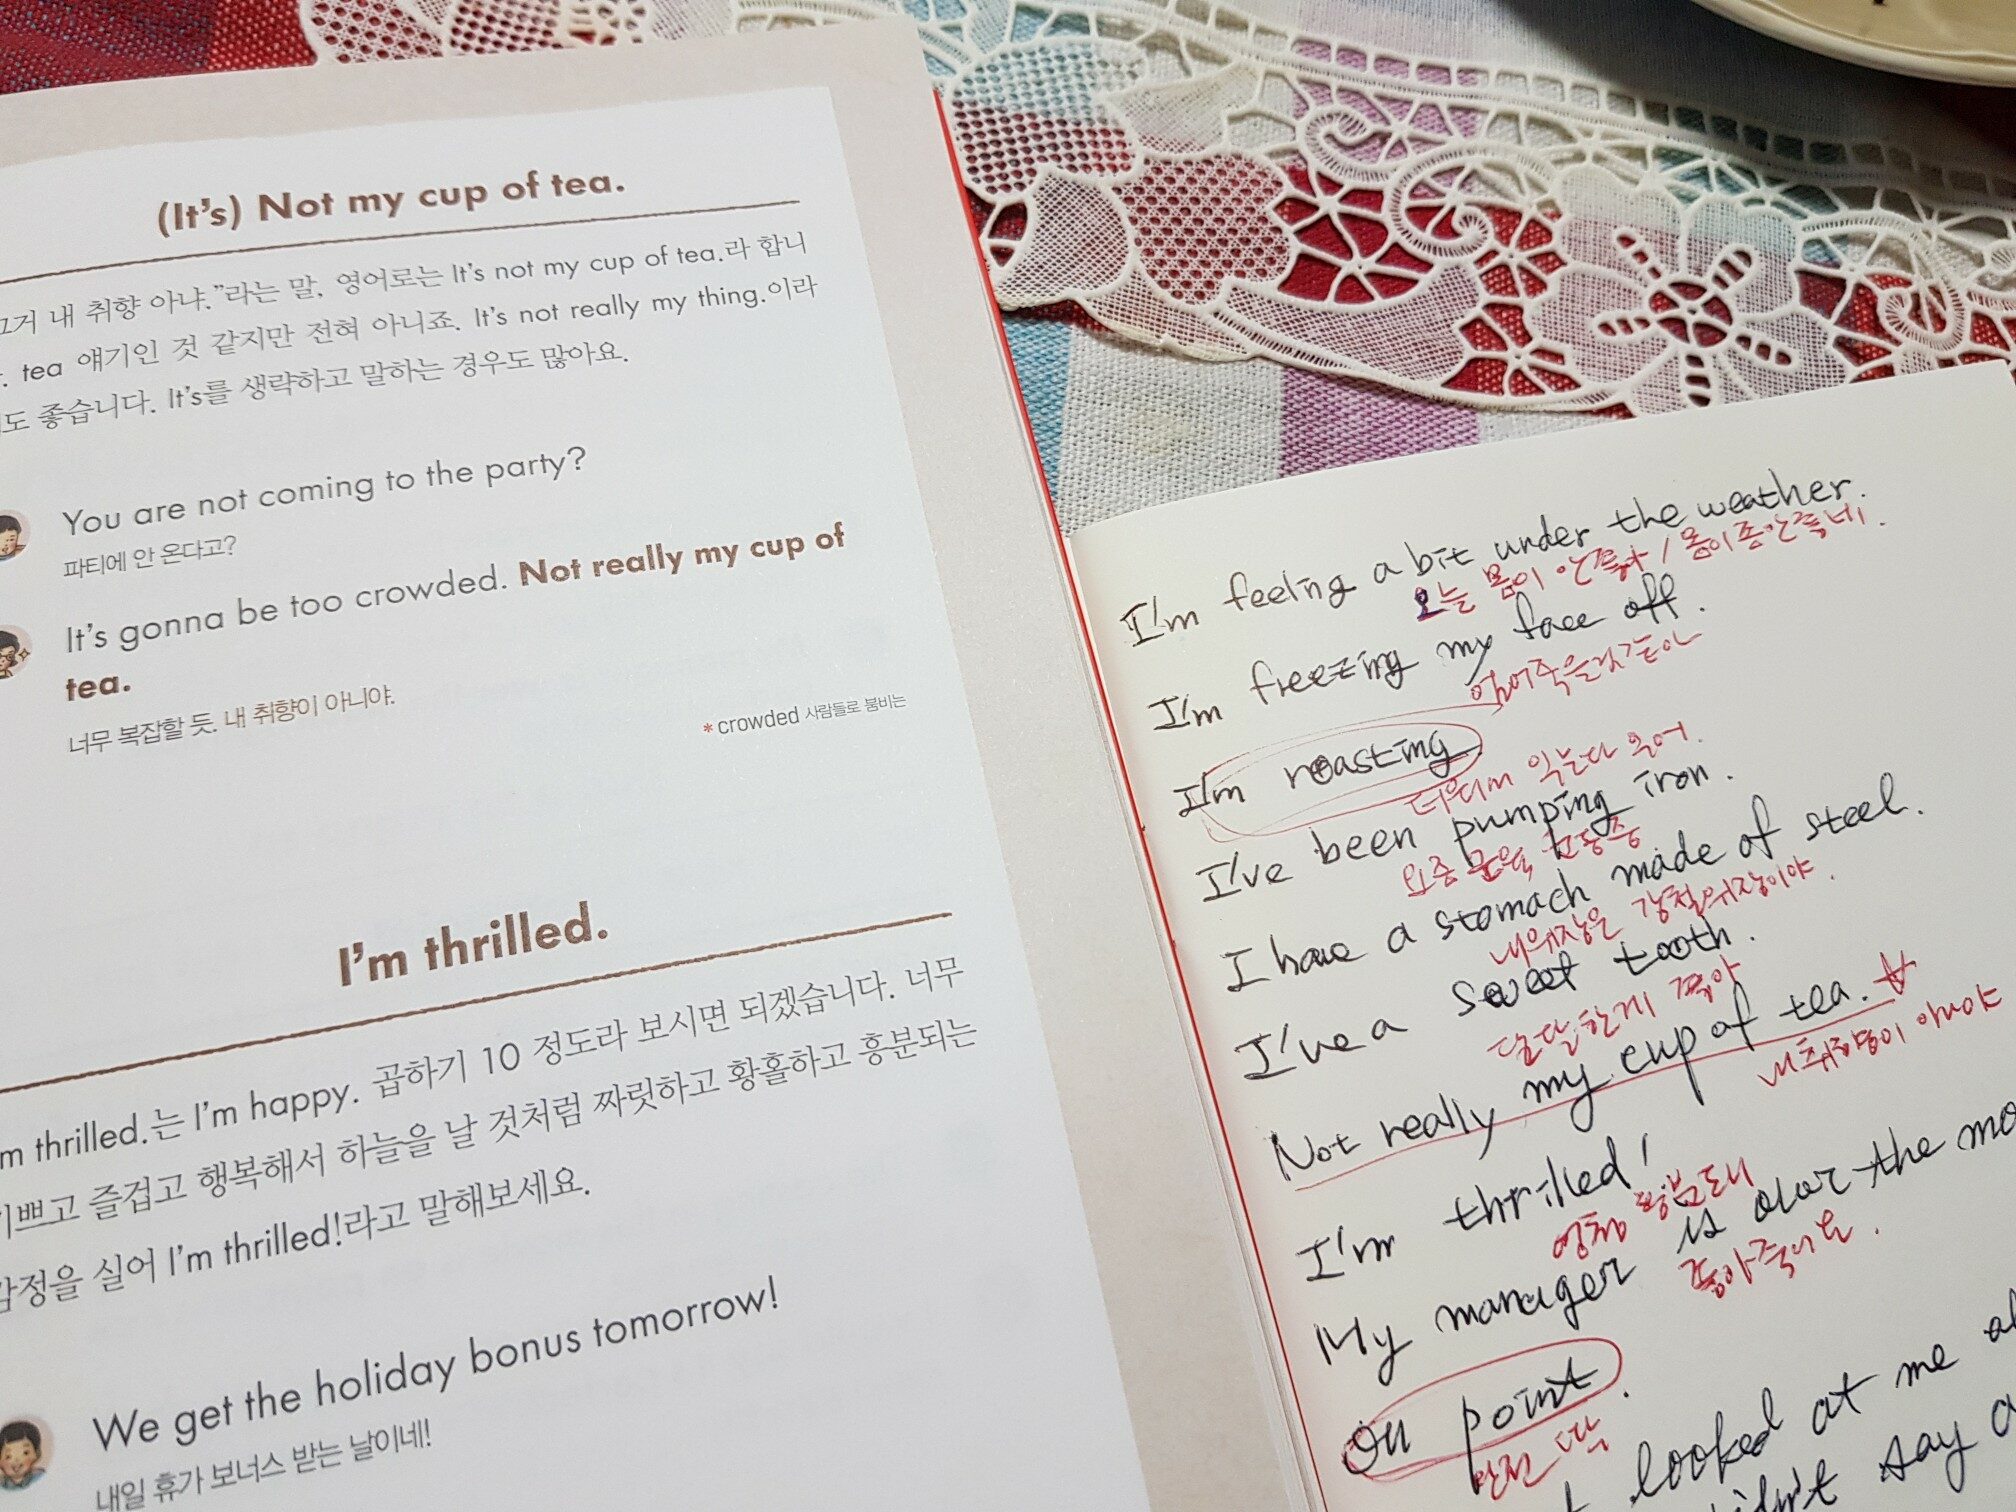 (It's) Not my cup of tea.
거 내 취향 아냐."라는 말, 영어로는 It's not my cup of tea.라 합니
tea 얘기인 것 같지만 전혀 아니죠. It's not really my thing.이라
도 좋습니다. It's를 생략하고 말하는 경우도 많아요.
You are not coming to the party?
파티에 안 온다고?
It's gonna be too crowded. Not really my cup of
tea.
너무 복잡할 듯. 내 취향이 아니야.
* crowded 사람들로 붐비는
I'm thrilled.
m thrilled.는 I'm happy. 곱하기 10 정도라 보시면 되겠습니다. 너무
기쁘고 즐겁고 행복해서 하늘을 날 것처럼 짜릿하고 황홀하고 흥분되는
감정을 실어 I'm thrilled!라고 말해보세요.
We get the holiday bonus tomorrow!
내일 휴가 보너스 받는 날이네!
I'm feeling a bit under the weather.
오늘 몸이 안좋아 / 몸이 좀 안좋네.
I'm freezing my face off.
얼어죽을것같아
I'm roasting.
더워서 익는다
I've been pumping iron.
요즘 근육 운동중
I have a stomach made of steel.
내위장은 강철위장이야.
I've a sweet tooth.
달달한게
Not really my cup of tea.
내취향이 아니야
I'm thrilled!
엄청 흥분되니
My manager is over the mo
좋아죽어요.
on point.
완전 딱
looked at me
didn't say a